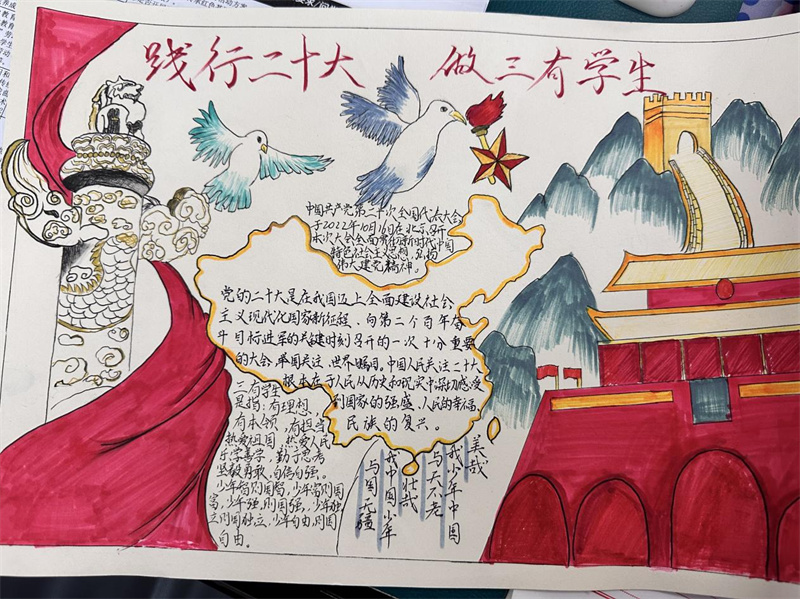 践行二十大 做三有学生
中国共产党第二十次全国代表大会
于2022年10月16日在北京召开
本次大会全面贯彻新时代中国
特色社会主义思想，弘扬
伟大建党精神。
党的二十大是在我国迈上全面建设社会
主义现代化国家新征程、向第二个百年奋
斗目标进军的关键时刻召开的一次十分重要
的大会，举国关注、世界瞩目。中国人民关注二十大
根本在于人民从历史和现实中深切感受
到国家的强盛、人民的幸福
民族的复兴。
三有学生
是指：有理想，
有本领，有担当
热爱祖国，热爱人民
乐学善学，勤于思考
坚毅勇敢，自信自强。
少年智则国智，少年富则国
富，少年强，则国强，少年独
立则国独立，少年自由，则国
自由。
美哉
我少年中国
与天不老
壮哉
我中国少年
与国无疆